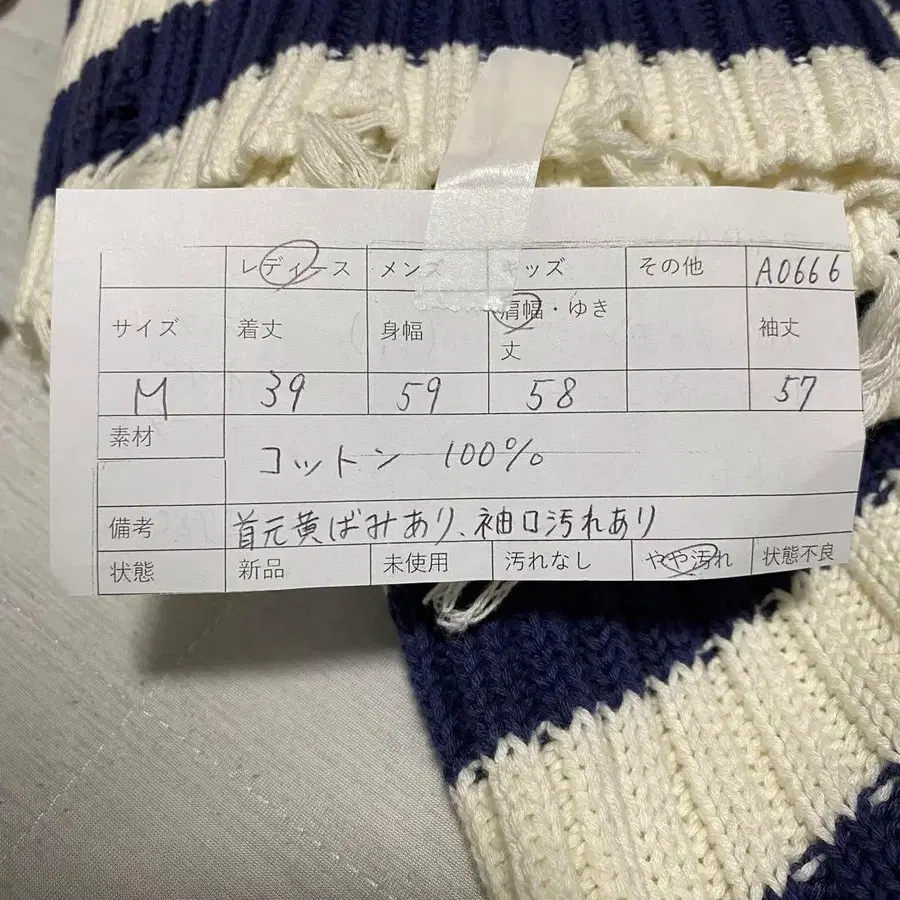 レディース メンズ キッズ その他 A0666
サイズ 着丈 身幅 肩幅・ゆき丈 袖丈
M 39 59 58 57
素材 コットン 100%
備考 首元黄ばみあり、袖口汚れあり
状態 新品 未使用 汚れなし やや汚れ 状態不良